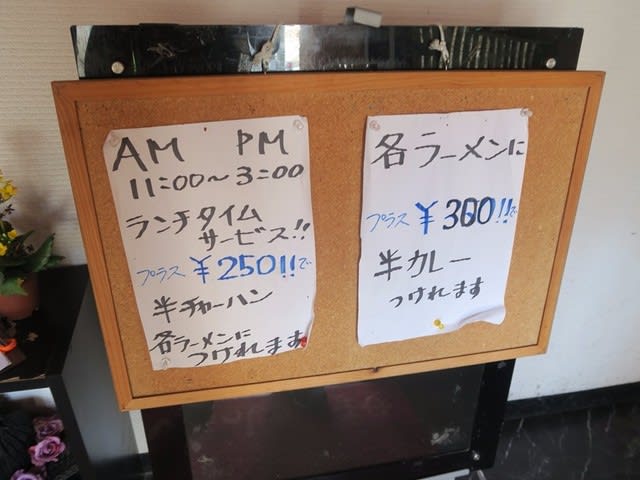 AM PM
11:00～3:00
ランチタイム
サービス!!
プラス ¥250!!で
半チャーハン
各ラーメンに
つけれます
各ラーメンに
プラス ¥300!!で
半カレー
つけれます